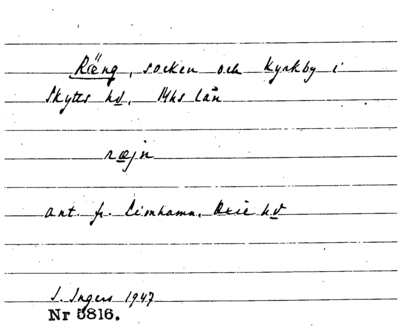 Räng, socken och kyrkby i
Skytts hd. Mhs län
ræjn
ant. fr. Limhamn, Oxie hd
I. Ingers 1947
Nr 5816.